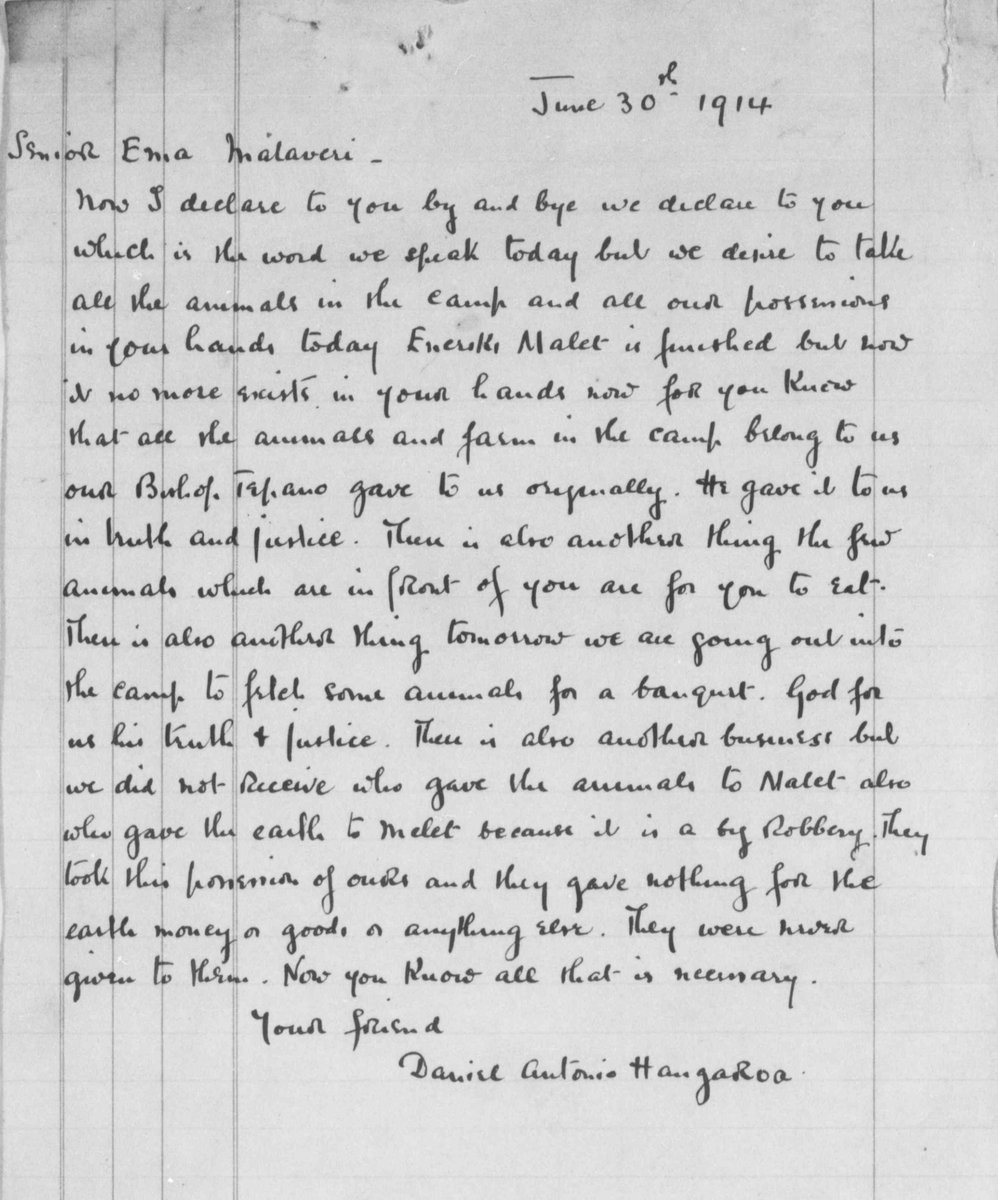 June 30th 1914
Senior Ema Mataveri -
Now I declare to you by and bye we declare to you
which is the word we speak today but we desire to take
all the animals in the camp and all our possessions
in your hands today Eneriki Malet is finished but now
it no more exists in your hands now for you Know
that all the animals and farm in the camp belong to us
our Bishop Tepano gave to us originally. He gave it to us
in truth and justice. There is also another thing the few
animals which are in front of you are for you to eat.
There is also another thing tomorrow we are going out into
the camp to fetch some animals for a banquet. God for
us his truth & justice. There is also another business but
we did not Receive who gave the animals to Malet also
who gave the earth to Melet because it is a big Robbery. They
took this possession of ours and they gave nothing for the
earth money or goods or anything else. They were never
given to them. Now you Know all that is necessary.
Your friend
Daniel Antonio HangaRoa